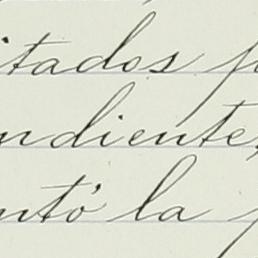 itados p
ndiente,
ntó la